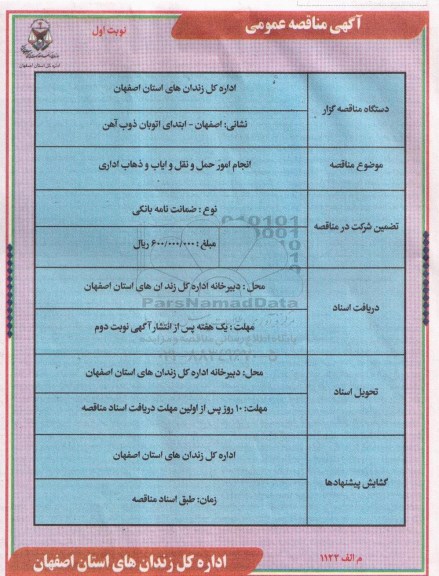 آگهی مناقصه عمومی
نوبت اول
اداره کل زندان های استان اصفهان
دستگاه مناقصه گزار
اداره کل زندان های استان اصفهان
نشانی: اصفهان - ابتدای اتوبان ذوب آهن
موضوع مناقصه
انجام امور حمل و نقل و ایاب و ذهاب اداری
تضمین شرکت در مناقصه
نوع : ضمانت نامه بانکی
مبلغ : ۶۰۰/۰۰۰/۰۰۰ ریال
دریافت اسناد
محل : دبیرخانه اداره کل زندان های استان اصفهان
مهلت : یک هفته پس از انتشار آگهی نوبت دوم
ParsNamadData
پایگاه اطلاع رسانی مناقصه و مزایده
تحویل اسناد
محل: دبیرخانه اداره کل زندان های استان اصفهان
مهلت: ۱۰ روز پس از اولین مهلت دریافت اسناد مناقصه
گشایش پیشنهادها
اداره کل زندان های استان اصفهان
زمان: طبق اسناد مناقصه
م الف ۱۱۲۳
اداره کل زندان های استان اصفهان